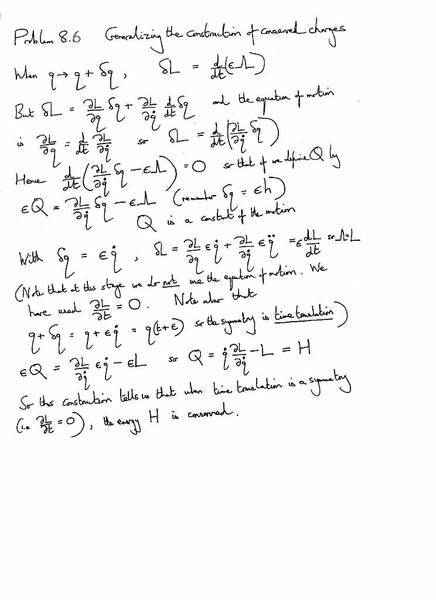 Problem 8.6 Generalizing the construction of conserved charges
When q → q + δq , δL = d/dt(εΛ)
But δL = ∂L/∂q δq + ∂L/∂q̇ d/dt δq and the equation of motion
is ∂L/∂q = d/dt ∂L/∂q̇ so δL = d/dt(∂L/∂q̇ δq)
Hence d/dt(∂L/∂q̇ δq - εΛ) = 0 so that if we define Q by
εQ = ∂L/∂q̇ δq - εΛ (remember δq = εh)
Q is a constant of the motion
With δq = εq̇ , δL = ∂L/∂q εq̇ + ∂L/∂q̇ εq̈ = ε dL/dt so Λ=L
(Note that at this stage we do not use the equation of motion. We
have used ∂L/∂t = 0. Note also that
q + δq = q + εq̇ = q(t+ε) so the symmetry is time translation)
εQ = ∂L/∂q̇ εq̇ - εL so Q = q̇ ∂L/∂q̇ - L = H
So this construction tells us that when time translation is a symmetry
(i.e. ∂L/∂t = 0), the energy H is conserved.